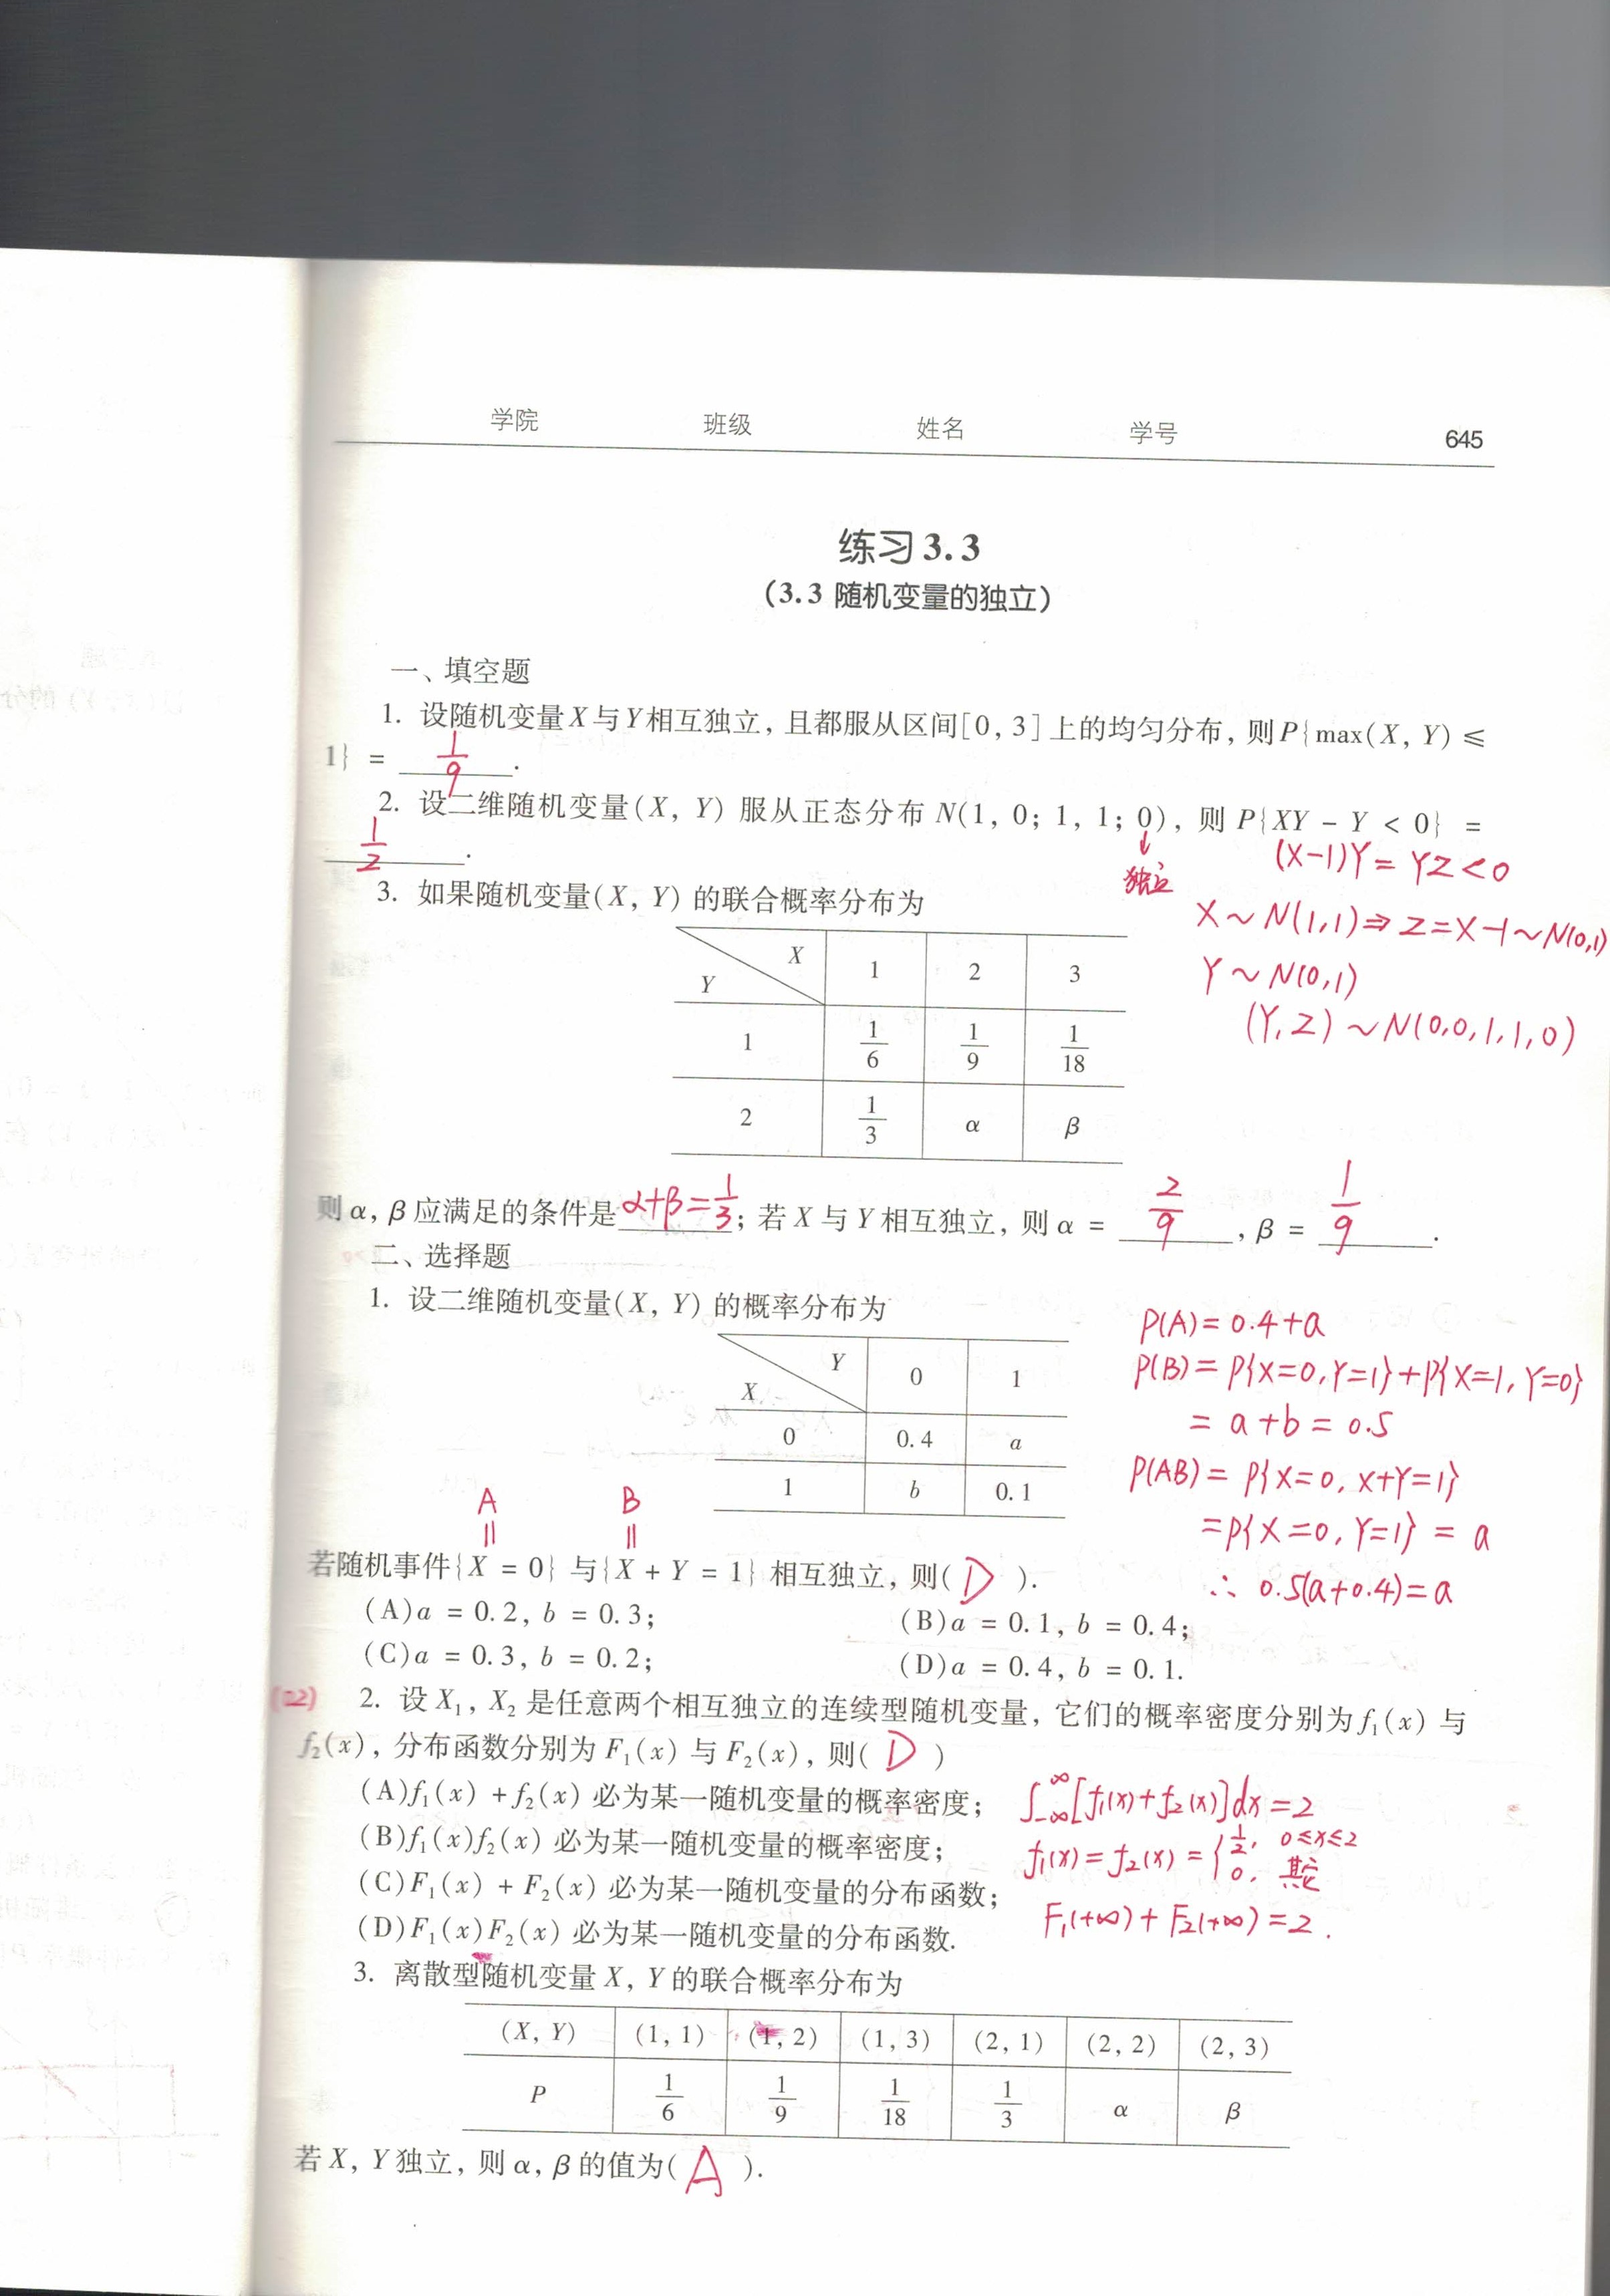 学院 班级 姓名 学号 645
练习3.3
(3.3 随机变量的独立)
一、填空题
1. 设随机变量X与Y相互独立，且都服从区间[0, 3]上的均匀分布，则P{max(X, Y) ≤
1} = 1/9.
2. 设二维随机变量(X, Y) 服从正态分布 N(1, 0; 1, 1; 0)，则 P{XY − Y < 0} =
1/2.
↓
独立
(X-1)Y = YZ < 0
3. 如果随机变量(X, Y) 的联合概率分布为
X~N(1,1) ⇒ Z=X-1~N(0,1)
Y~N(0,1)
(Y,Z)~N(0,0,1,1,0)
Y X 1 2 3
1 1/6 1/9 1/18
2 1/3 α β
则α, β应满足的条件是 α+β=1/3; 若X与Y相互独立，则α = 2/9, β = 1/9.
二、选择题
1. 设二维随机变量(X, Y) 的概率分布为
X Y 0 1
0 0.4 a
1 b 0.1
P(A)=0.4+a
P(B)=P{X=0,Y=1}+P{X=1,Y=0}
=a+b=0.5
P(AB)=P{X=0, X+Y=1}
=P{X=0,Y=1}=a
∴ 0.5(a+0.4)=a
A B
|| ||
若随机事件{X = 0}与{X + Y = 1}相互独立，则( D ).
(A)a = 0.2, b = 0.3; (B)a = 0.1, b = 0.4;
(C)a = 0.3, b = 0.2; (D)a = 0.4, b = 0.1.
2. 设X₁, X₂是任意两个相互独立的连续型随机变量，它们的概率密度分别为f₁(x)与
f₂(x)，分布函数分别为F₁(x)与F₂(x)，则( D )
(A)f₁(x) + f₂(x) 必为某一随机变量的概率密度; ∫_{-∞}^{∞}[f₁(x)+f₂(x)]dx=2
(B)f₁(x)f₂(x) 必为某一随机变量的概率密度; f₁(x)=f₂(x)={1/2, 0≤x≤2
0, 其它
(C)F₁(x) + F₂(x) 必为某一随机变量的分布函数; F₁(+∞)+F₂(+∞)=2.
(D)F₁(x)F₂(x) 必为某一随机变量的分布函数.
3. 离散型随机变量X, Y的联合概率分布为
(X, Y) (1, 1) (1, 2) (1, 3) (2, 1) (2, 2) (2, 3)
P 1/6 1/9 1/18 1/3 α β
若X, Y独立，则α, β的值为( A ).